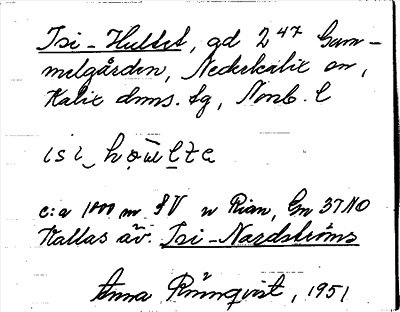 Isi-Hultet, gd 2⁴⁷ Gam-
melgården, Nederkalix sn,
Kalix dmns. tg, Norrb. l
c:a 1000 m SV Gm 37 NO
Kallas äv. Isi-Nordströms
Anna Rönnqvist, 1951